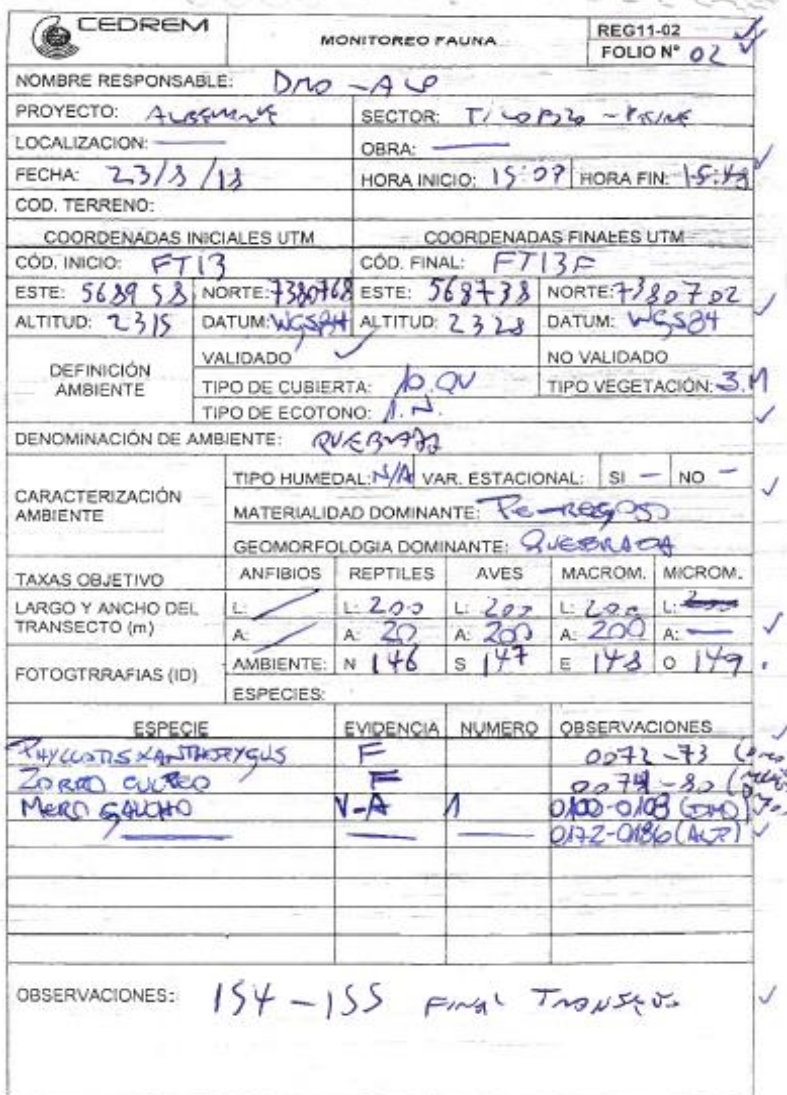 CEDREM
MONITOREO FAUNA
REG11-02
FOLIO Nº 02
NOMBRE RESPONSABLE: DMO - ALP
PROYECTO: ALBEMARLE SECTOR: TILOPOZO -
LOCALIZACION: — OBRA: —
FECHA: HORA INICIO: 15:07 HORA FIN:
COD. TERRENO:
COORDENADAS INICIALES UTM COORDENADAS FINALES UTM
CÓD. INICIO: FT13 CÓD. FINAL: FT13F
ESTE: 568958 NORTE: 7380768 ESTE: 568738 NORTE: 7380702
ALTITUD: 2315 DATUM: WGS84 ALTITUD: 2328 DATUM: WGS84
DEFINICIÓN AMBIENTE
VALIDADO ✓ NO VALIDADO
TIPO DE CUBIERTA: 10.QU TIPO VEGETACIÓN: 3.M
TIPO DE ECOTONO: 1.N.
DENOMINACIÓN DE AMBIENTE: QUEBRADA
CARACTERIZACIÓN AMBIENTE
TIPO HUMEDAL: N/A VAR. ESTACIONAL: SI — NO —
MATERIALIDAD DOMINANTE:
GEOMORFOLOGIA DOMINANTE: QUEBRADA
TAXAS OBJETIVO ANFIBIOS REPTILES AVES MACROM. MICROM.
LARGO Y ANCHO DEL TRANSECTO (m)
L: L: 200 L: 200 L: 200 L:
A: A: 20 A: 200 A: 200 A: —
FOTOGTRRAFIAS (ID)
AMBIENTE: N 146 S 147 E 148 O 149
ESPECIES:
ESPECIE EVIDENCIA NUMERO OBSERVACIONES
PHYLLOTIS XANTHOPYGUS F 0072-73
ZORRO CULPEO F
MERO GAUCHO V-A 1 0100-0108 (DMO)
— — — 0172-0186 (ALP)
OBSERVACIONES: 154-155 FINAL TRANSECTO